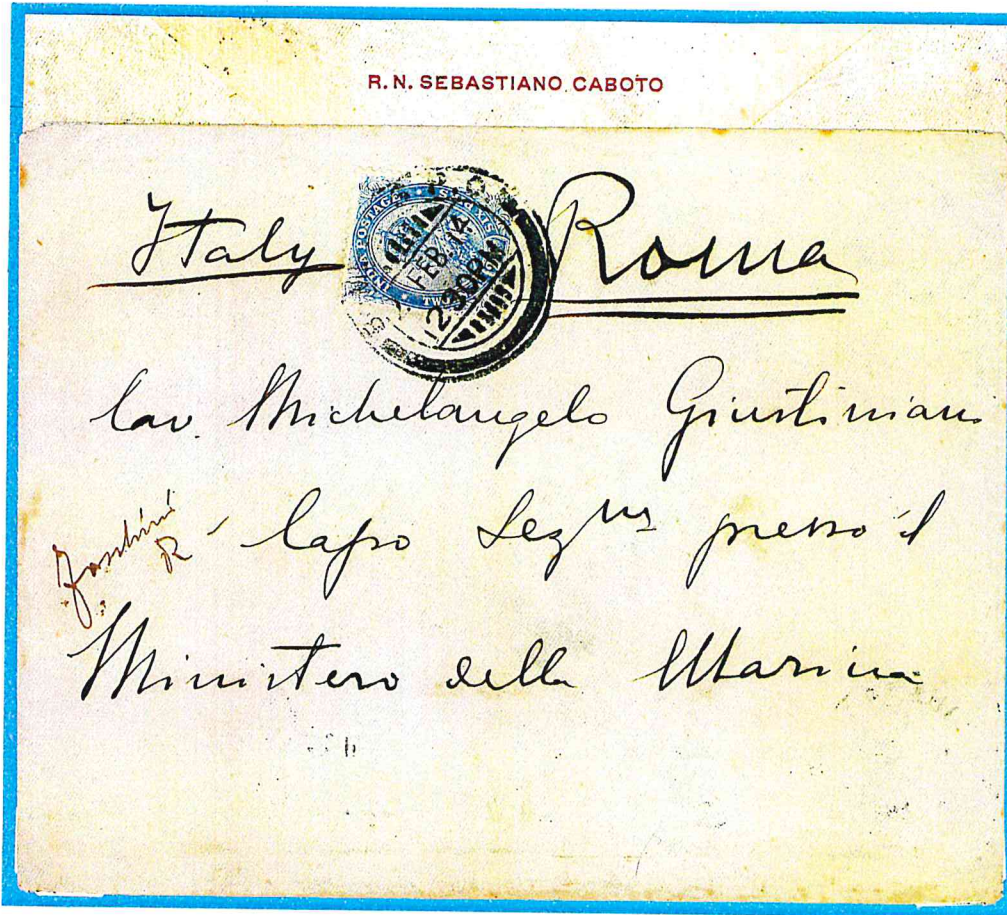 R. N. SEBASTIANO CABOTO
Italy Roma
INDIA POSTAGE TWO
FEB. 14
2 30PM
Cav. Michelangelo Giustiniani
Capo Sezne presso il
Ministero della Marina